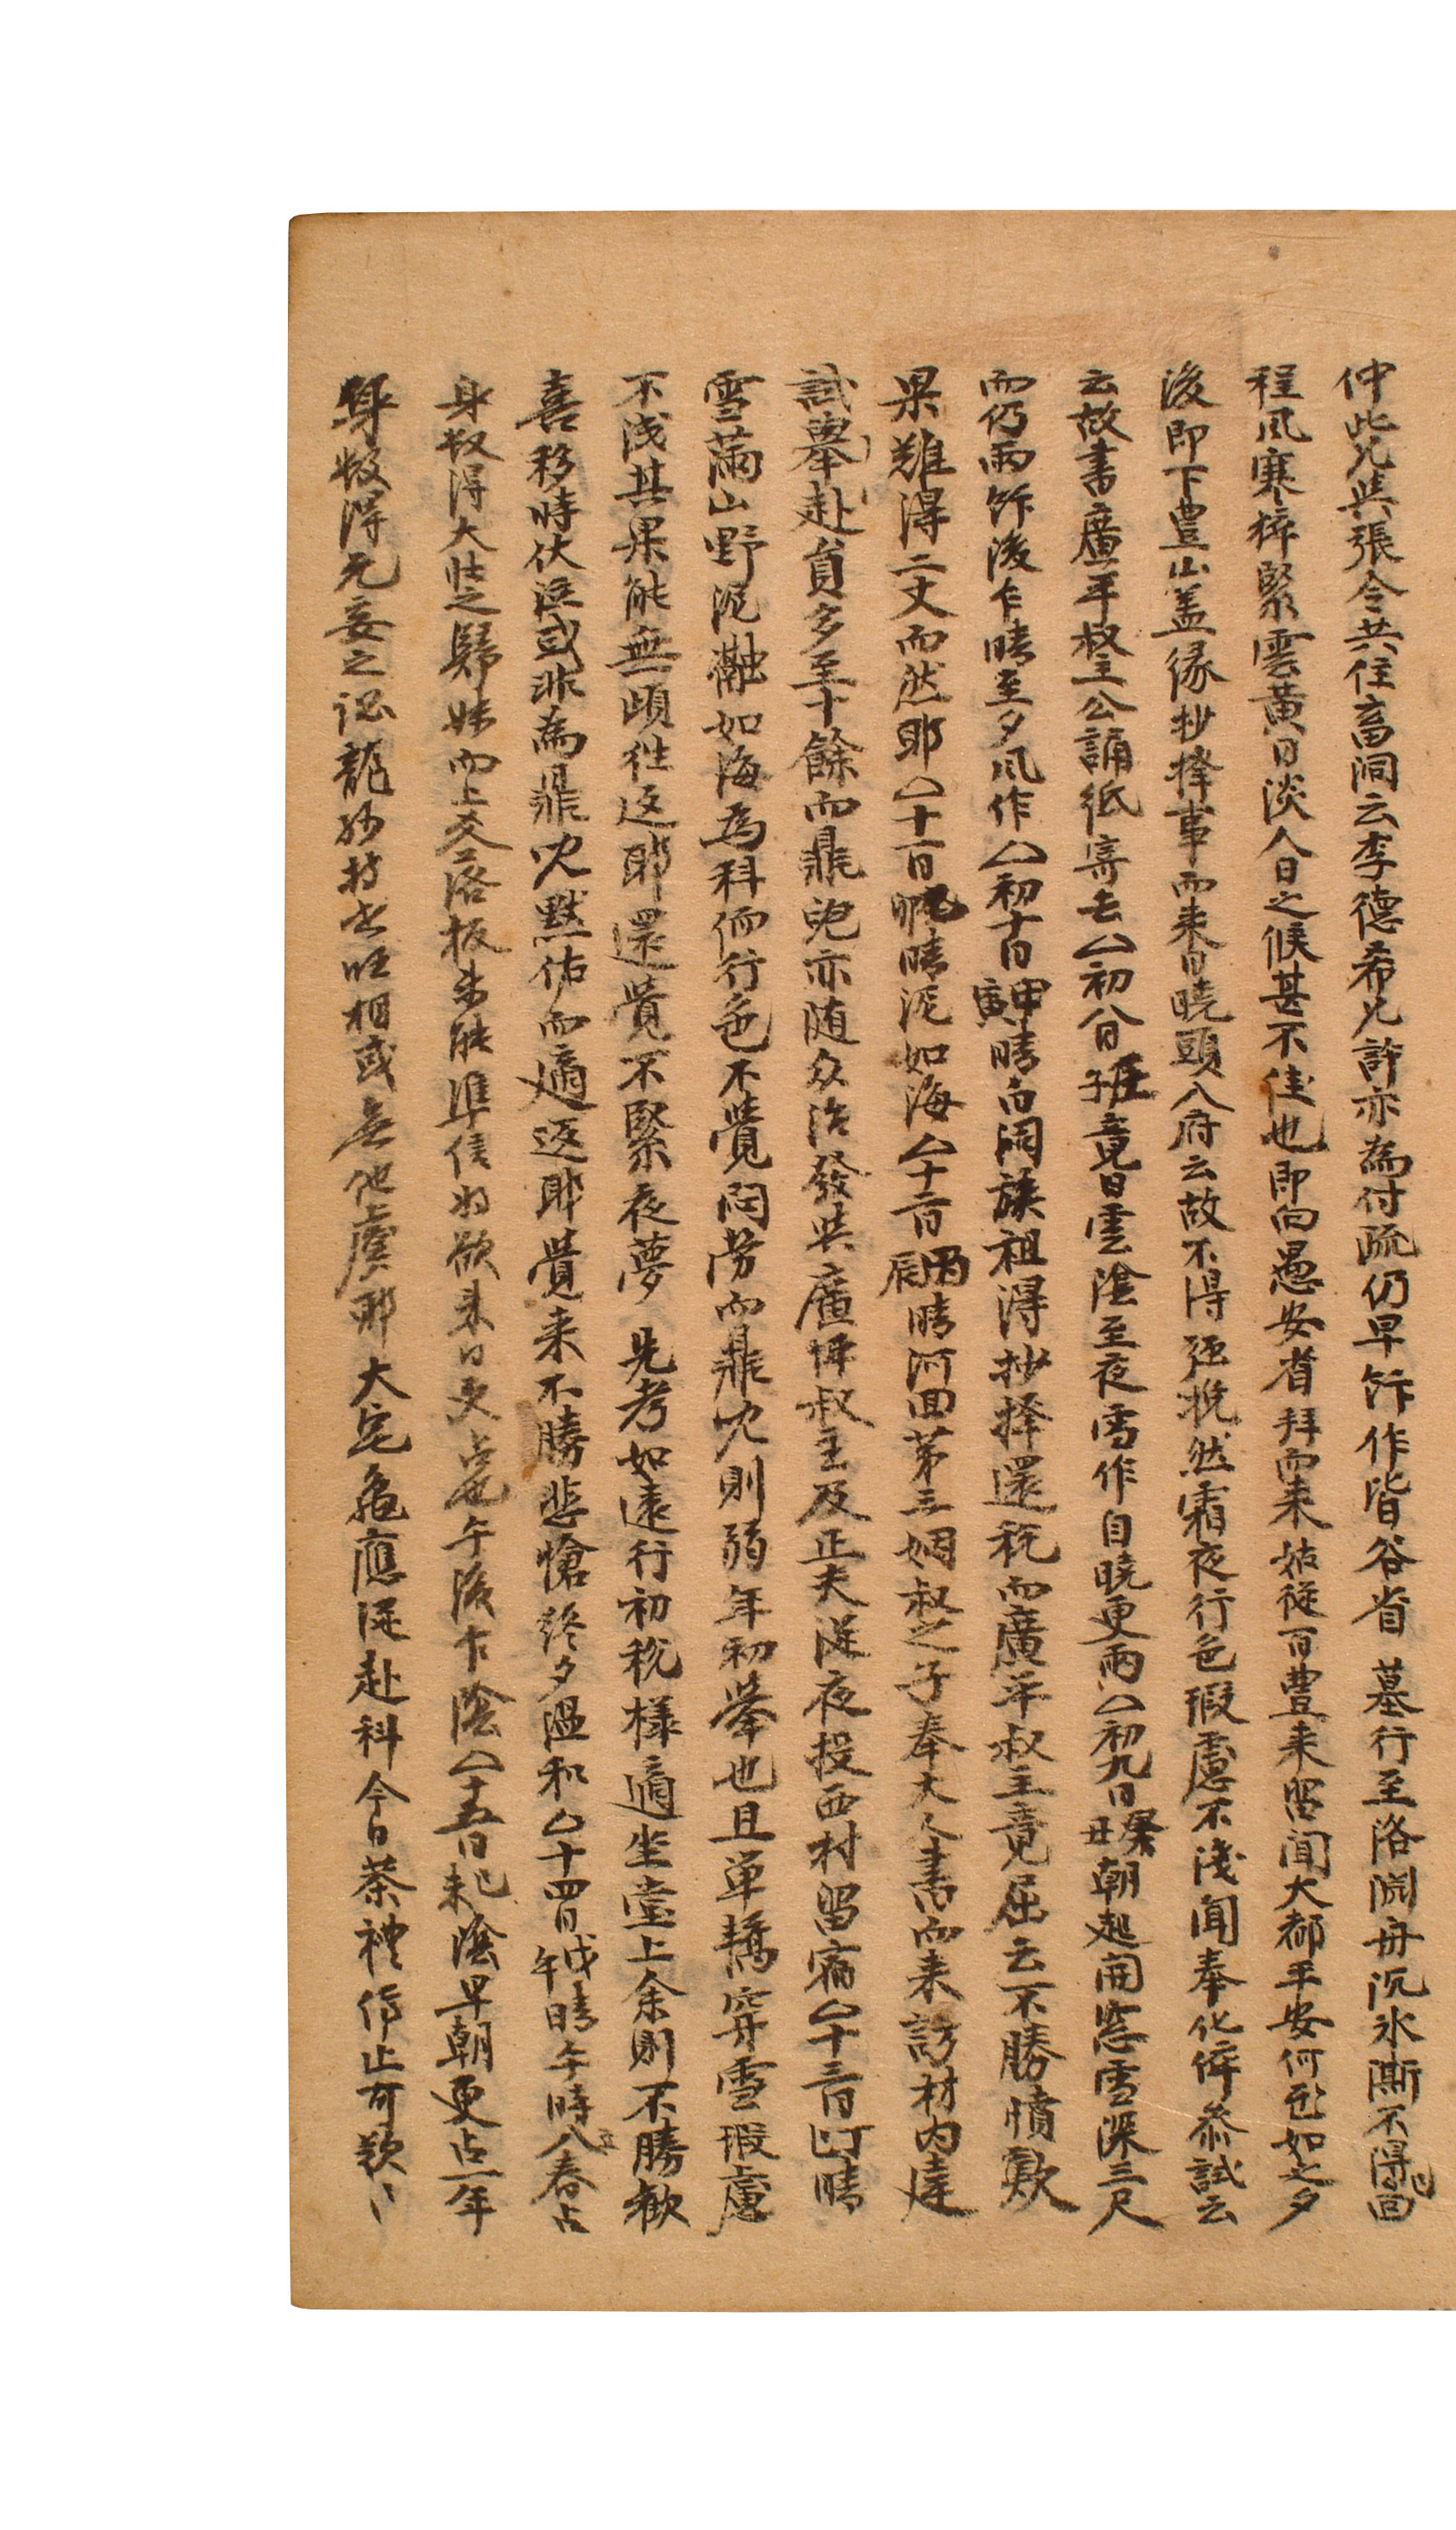 仲此兄與張令共住畜洞云李德希兄許亦為付疏仍早飯作皆谷省 墓行至洛淵舟沉氷澌不得回
程風寒猝緊雲黃日淡人日之候甚不佳也即向愚安省拜而來姑從自豊來留聞大都平安何慰如之夕
後即下豊山盖緣抄擇事而來日曉頭入府云故不得強挽然霜夜行色瑕慮不淺聞奉化倅參試云
云故書廣平叔主公誦紙寄去△初八日壬子竟日雲陰至夜雪作自曉更雨△初九日癸丑朝起開窓雪深三尺
而仍雨飯後乍晴至夕風作△初十日甲寅晴古洞族祖得抄擇還稅而廣平叔主竟屈云不勝憤歎
果難得二丈而然耶△十一日乙卯晴泥如海△十二日丙辰晴河回第三姻叔之子奉大人書而來訪村內達
試擧赴負多至十餘而鼎兒亦随众治發與廣坪叔主及正夫從夜投西村留宿△十三日丁巳晴
雪滿山野泥瀜如海為科価行色不覺悶劳而鼎兒則弱年初擧也且单轎穿雪瑕慮
不淺其果能無頉徃返耶還覺不緊夜夢 先考如遠行初稅樣適坐堂上余則不勝歡
喜移時伏侍或非為鼎兒黙佑而適返耶覺来不勝悲愴終夕温和△十四日戊午晴午時入春占
身数得大壯之歸妹而上爻落板未能準信故欲来日更占也午後乍陰△十五日己未陰早朝更占一年
身数得无妄之 龍 旺相或無他虞耶大宅龜應從赴科今日茶禮停止可歎〻